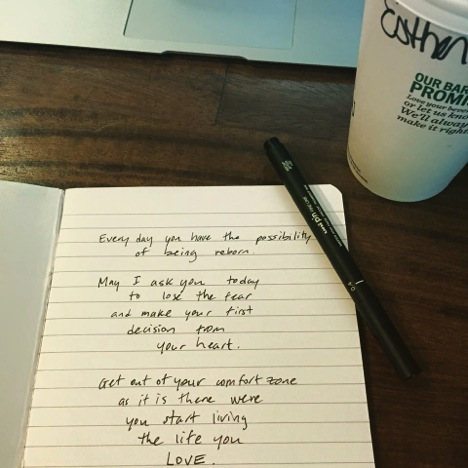 Esther
OUR BAR
PROMI
Love your beve
or let us kno
We'll alway
make it right
uni PIN
Every day you have the possibility
of being reborn.
May I ask you today
to lose the fear
and make your first
decision from
your heart.
Get out of your comfort zone
as it is there were
you start living
the life you
LOVE.